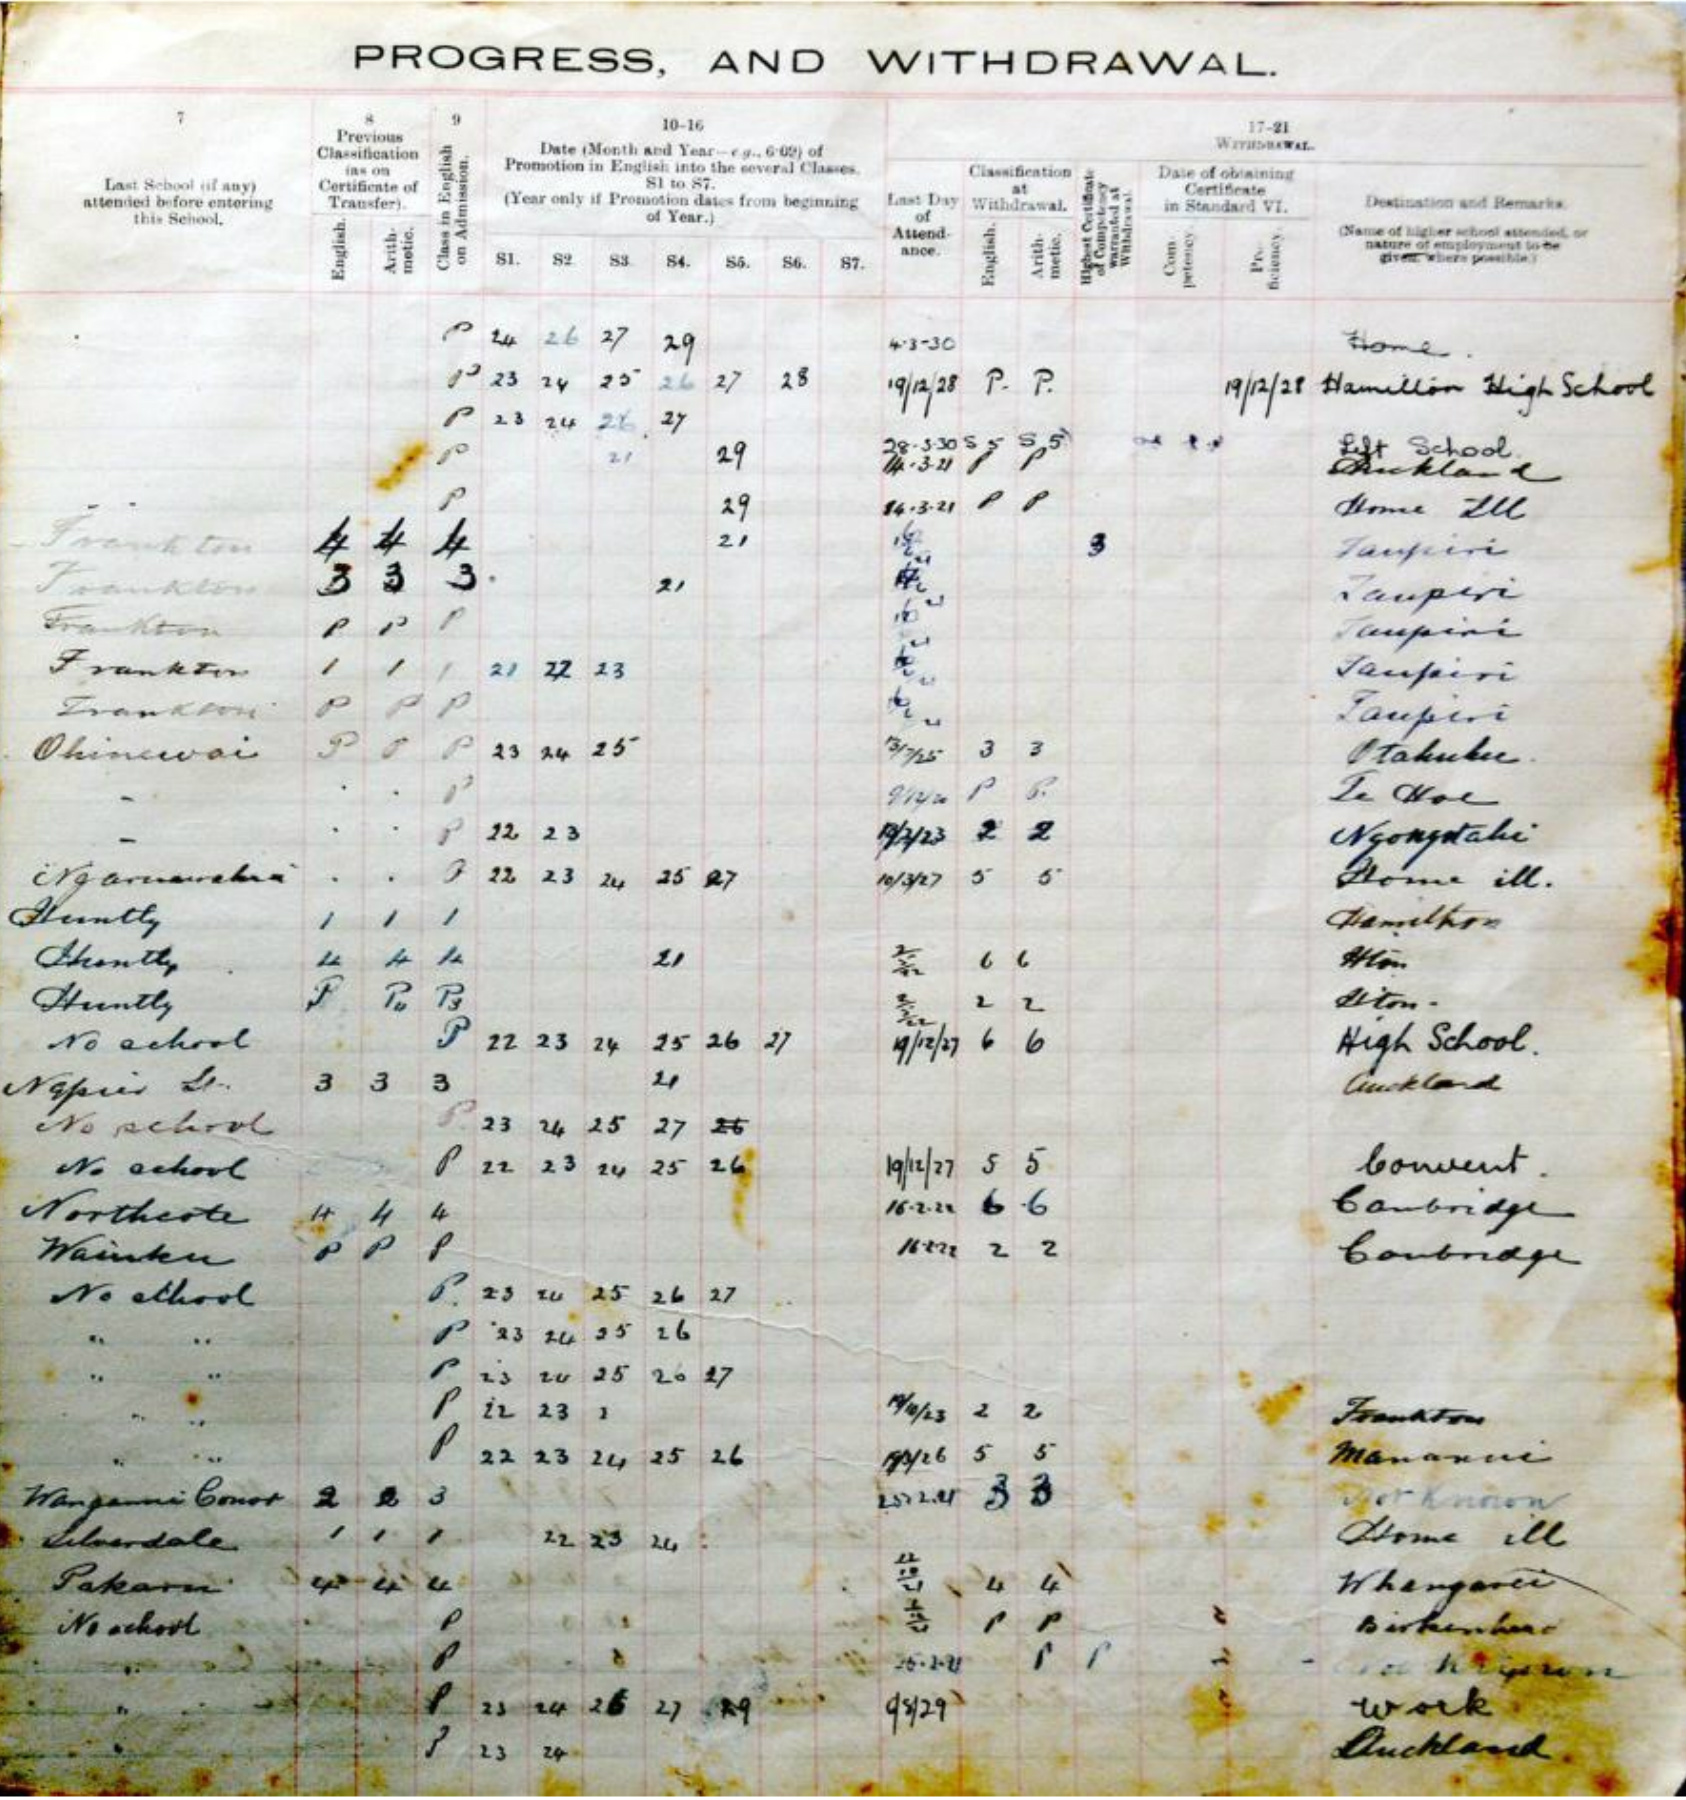 PROGRESS, AND WITHDRAWAL.
7
8
9
10-16
17-21
Last School (if any) attended before entering this School.
Previous Classification (as on Certificate of Transfer).
English.
Arith-metic.
Class in English on Admission.
Date (Month and Year—e.g., 6·09) of Promotion in English into the several Classes. S1 to S7.
(Year only if Promotion dates from beginning of Year.)
S1. S2. S3. S4. S5. S6. S7.
WITHDRAWAL.
Last Day of Attend-ance.
Classification at Withdrawal.
English.
Arith-metic.
Highest Certificate of Competency warranted at Withdrawal.
Date of obtaining Certificate in Standard VI.
Com-petency.
Pro-ficiency.
Destination and Remarks.
(Name of higher school attended, or nature of employment to be given, where possible.)
P 24 26 27 29 4-3-30 Home.
P 23 24 25 26 27 28 19/12/28 P. P. 19/12/28 Hamilton High School
P 23 24 27
28-3-30 S5 S5 Left School
P 21 29 14-3-21 P P Auckland
P 29 14-3-21 P P Home Ill
Frankton 4 4 4 21 3 Taupiri
Frankton 3 3 3 21 Taupiri
Frankton P P P Taupiri
Frankton 1 1 1 21 22 23 Taupiri
Frankton P P P Taupiri
Ohinewai P P P 23 24 25 3 3 Otahuhu
P P P. Te Hoe
P 22 23 2 2 Ngongotahi
Ngaruawahia P 22 23 24 25 27 10/3/27 5 5 Home ill.
Huntly 1 1 1 Hamilton
Huntly 4 4 4 21 6 6 Hton
Huntly P 2 2 Hton-
No school P 22 23 24 25 26 27 19/12/27 6 6 High School.
Napier St. 3 3 3 21 Auckland
No school P 23 24 25 27 26
No school P 22 23 24 25 26 19/12/27 5 5 Convent.
Northcote 4 4 4 16-2-22 6 6 Cambridge
Waiuku P P P 16-2-22 2 2 Cambridge
No school P. 23 24 25 26 27
" " P 23 24 25 26
" " P 23 24 25 26 27
" " P 22 23 19/10/23 2 2 Frankton
" " P 22 23 24 25 26 5 5
Wanganui 2 2 3 3 3 Not Known
Silverdale 1 1 1 22 23 24 Home ill
4 4 4 4 4 Whangarei
No school P P P Birkenhead
" P P P Not Known
" P 23 24 26 27 29 9/8/29 Work
" P 23 24 Auckland